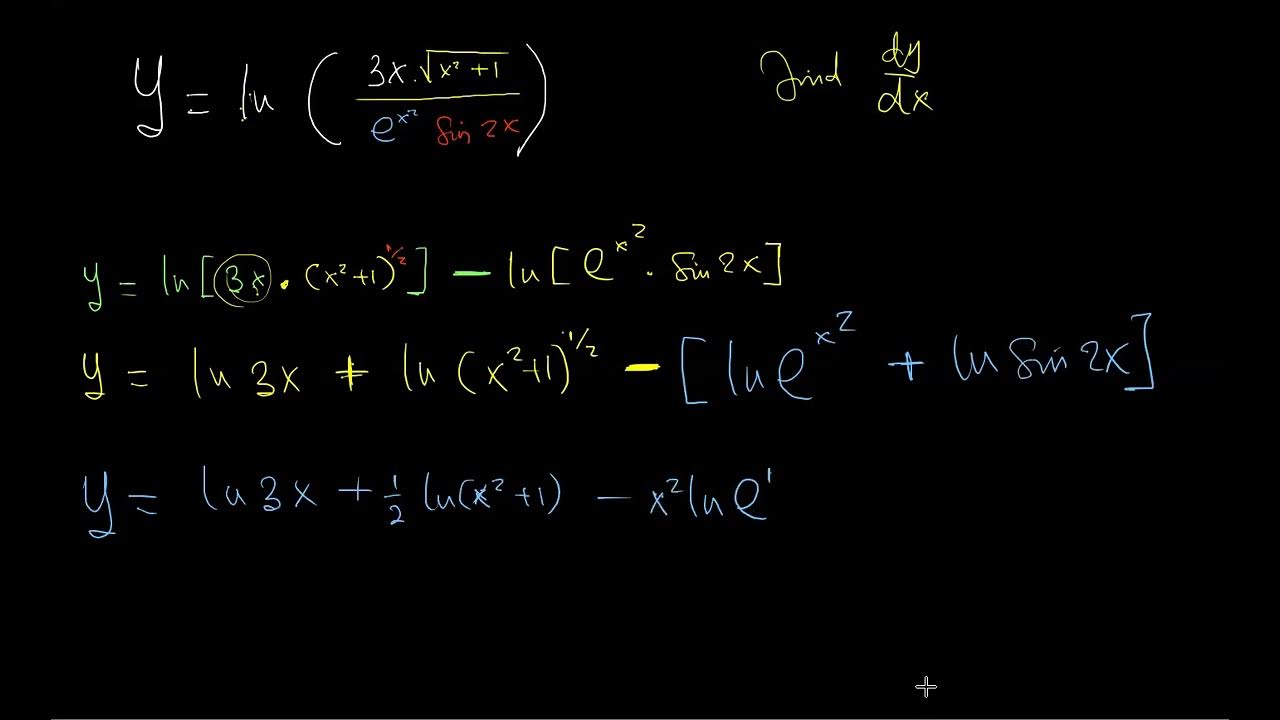 y = ln ( 3x · √(x² + 1) / e^(x²) sin 2x ) Find dy/dx
y = ln[3x · (x²+1)^(1/2)] − ln[e^(x²) · sin 2x]
y = ln 3x + ln (x²+1)^(1/2) − [ln e^(x²) + ln sin 2x]
y = ln 3x + 1/2 ln(x²+1) − x² ln e¹